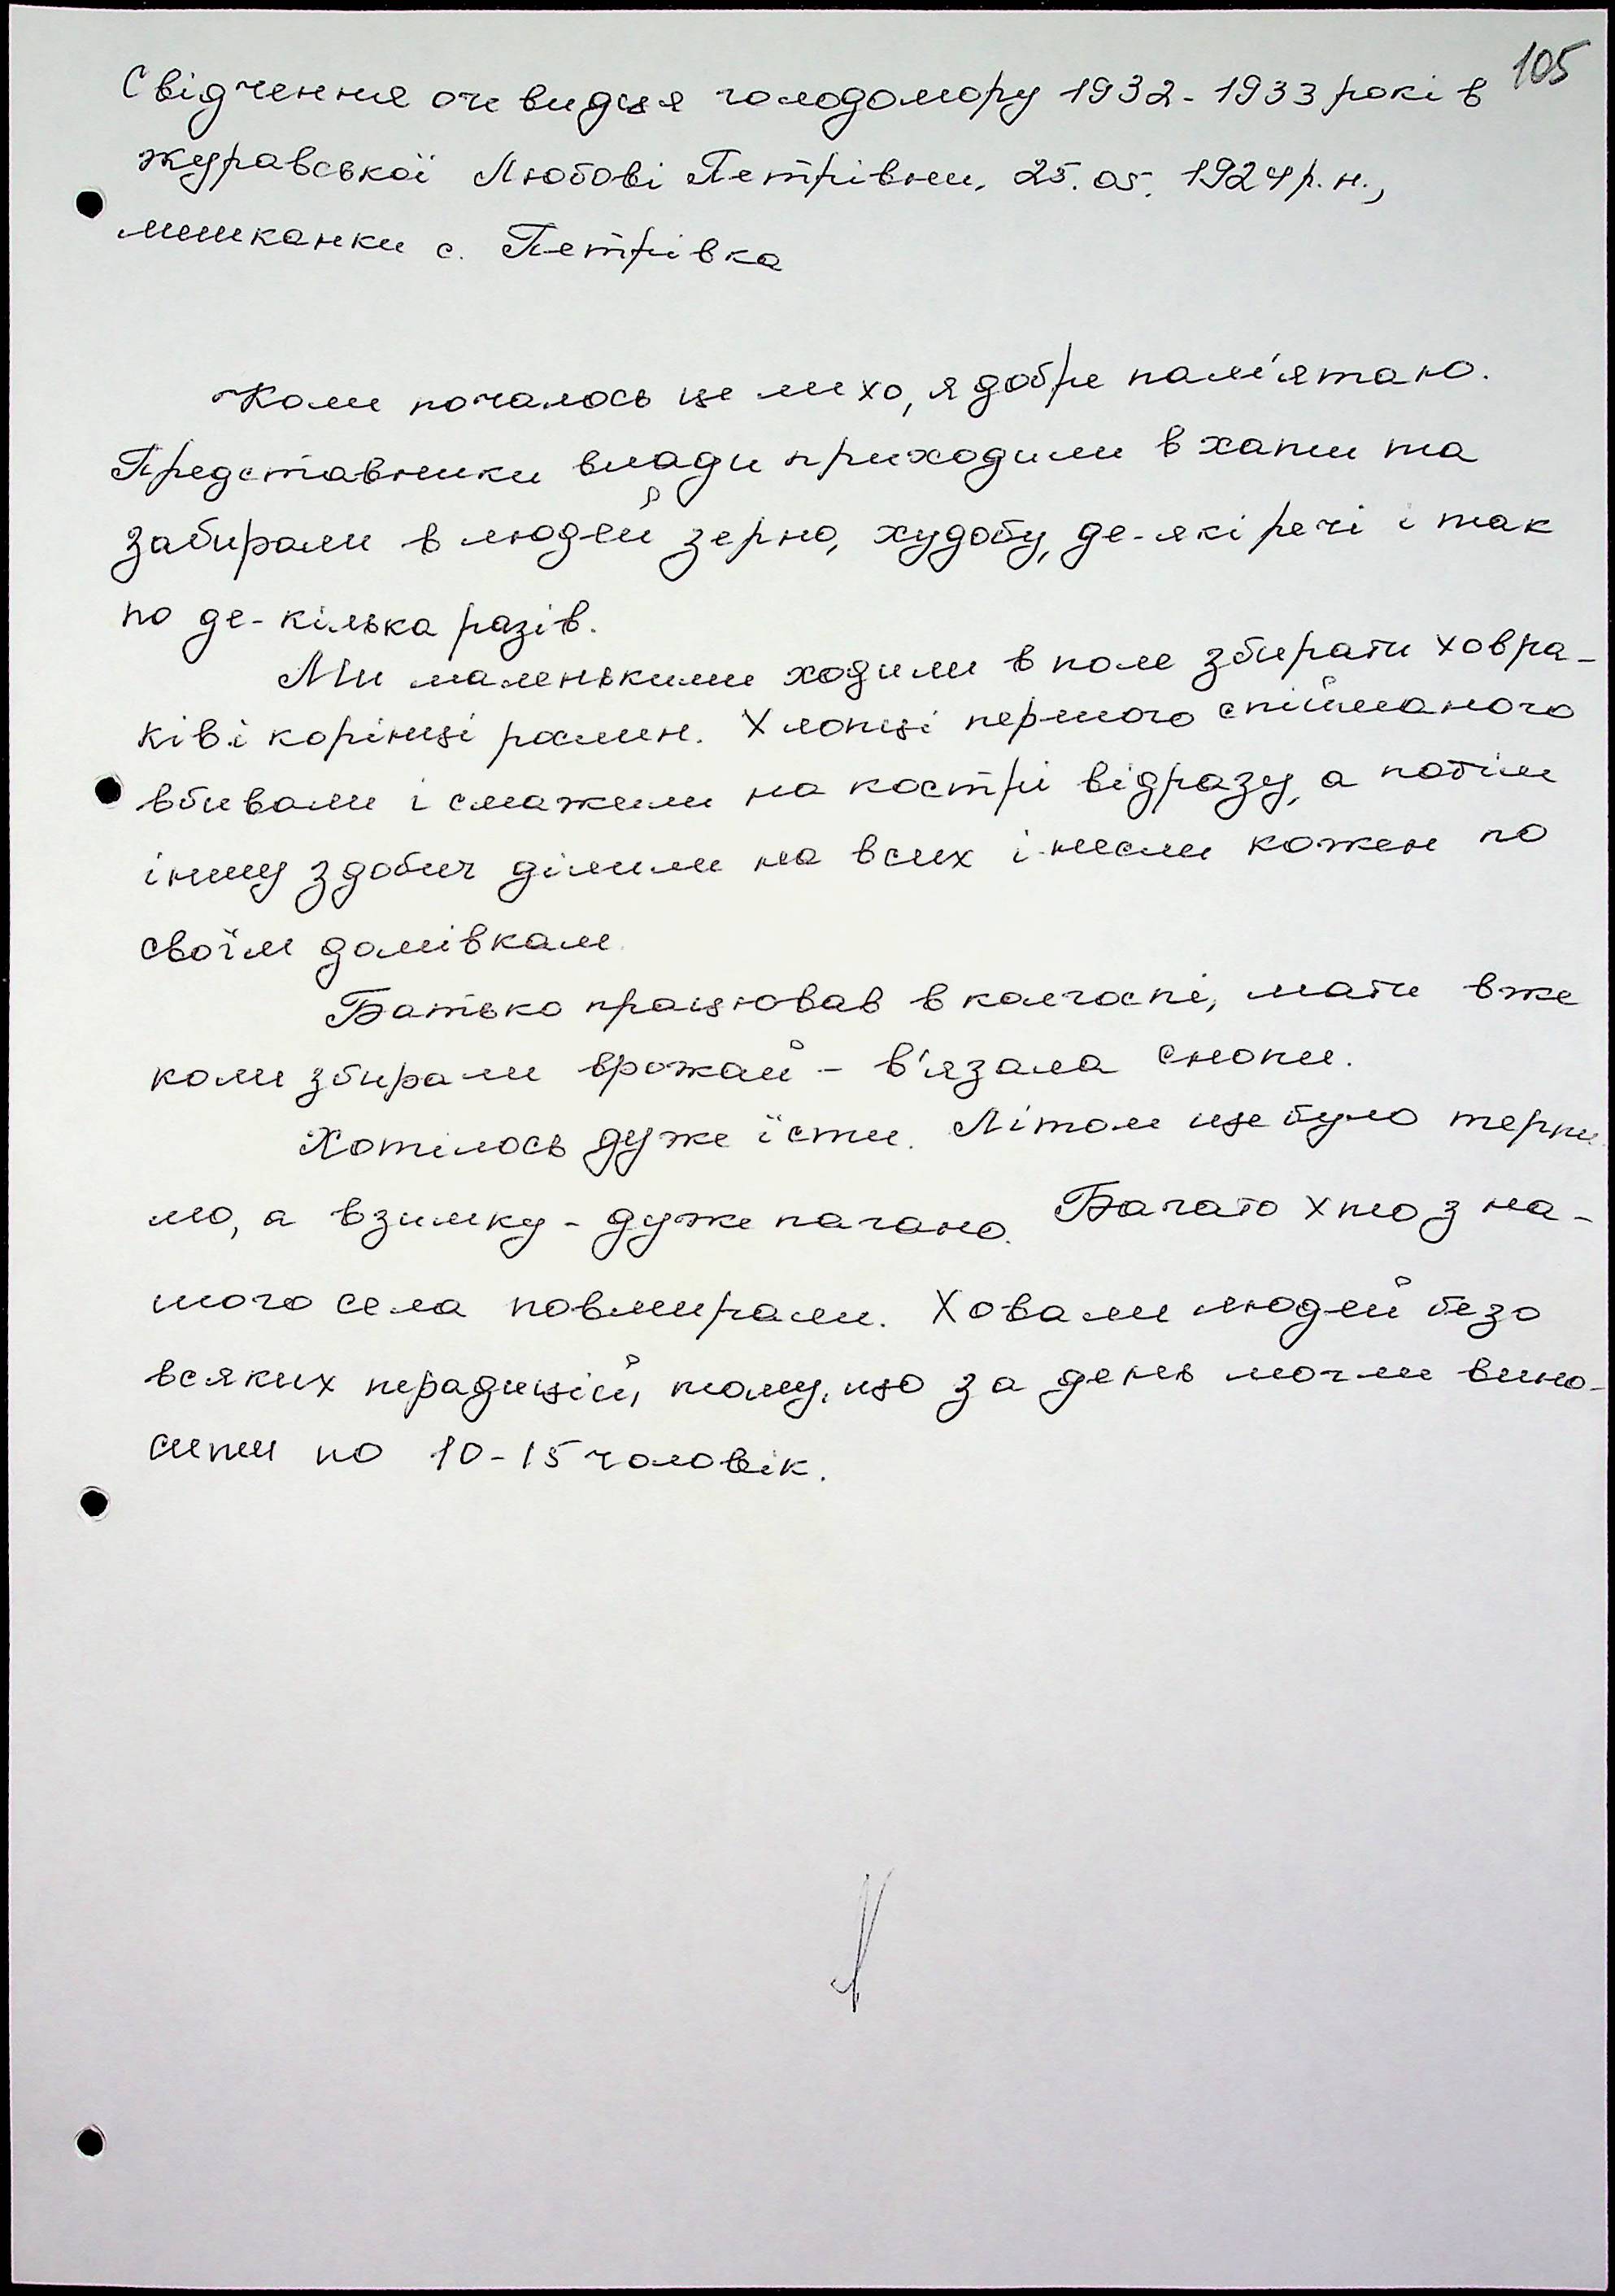 105
Свідчення очевидця голодомору 1932-1933 років
Журавської Любові Петрівни, 25.05.1924 р.н.,
мешканки с. Петрівка
Коли почалось це лихо, я добре пам'ятаю.
Представники влади приходили в хати та
забирали в людей зерно, худобу, де-які речі і так
по де-кілька разів.
Ми маленькими ходили в поле збирати ховра-
ків і корінці рослин. Хлопці першого спійманого
вбивали і смажили на кострі відразу, а потім
іншу здобич ділили на всих і несли кожен по
своїм домівкам.
Батько працював в колгоспі, мати вже
коли збирали врожай - в'язала снопи.
Хотілось дуже їсти. Літом ще було терпи
мо, а взимку - дуже погано. Багато хто з на-
шого села повмирали. Ховали людей безо
всяких традицій, тому, що за день могли вино-
сити по 10-15 чоловік.